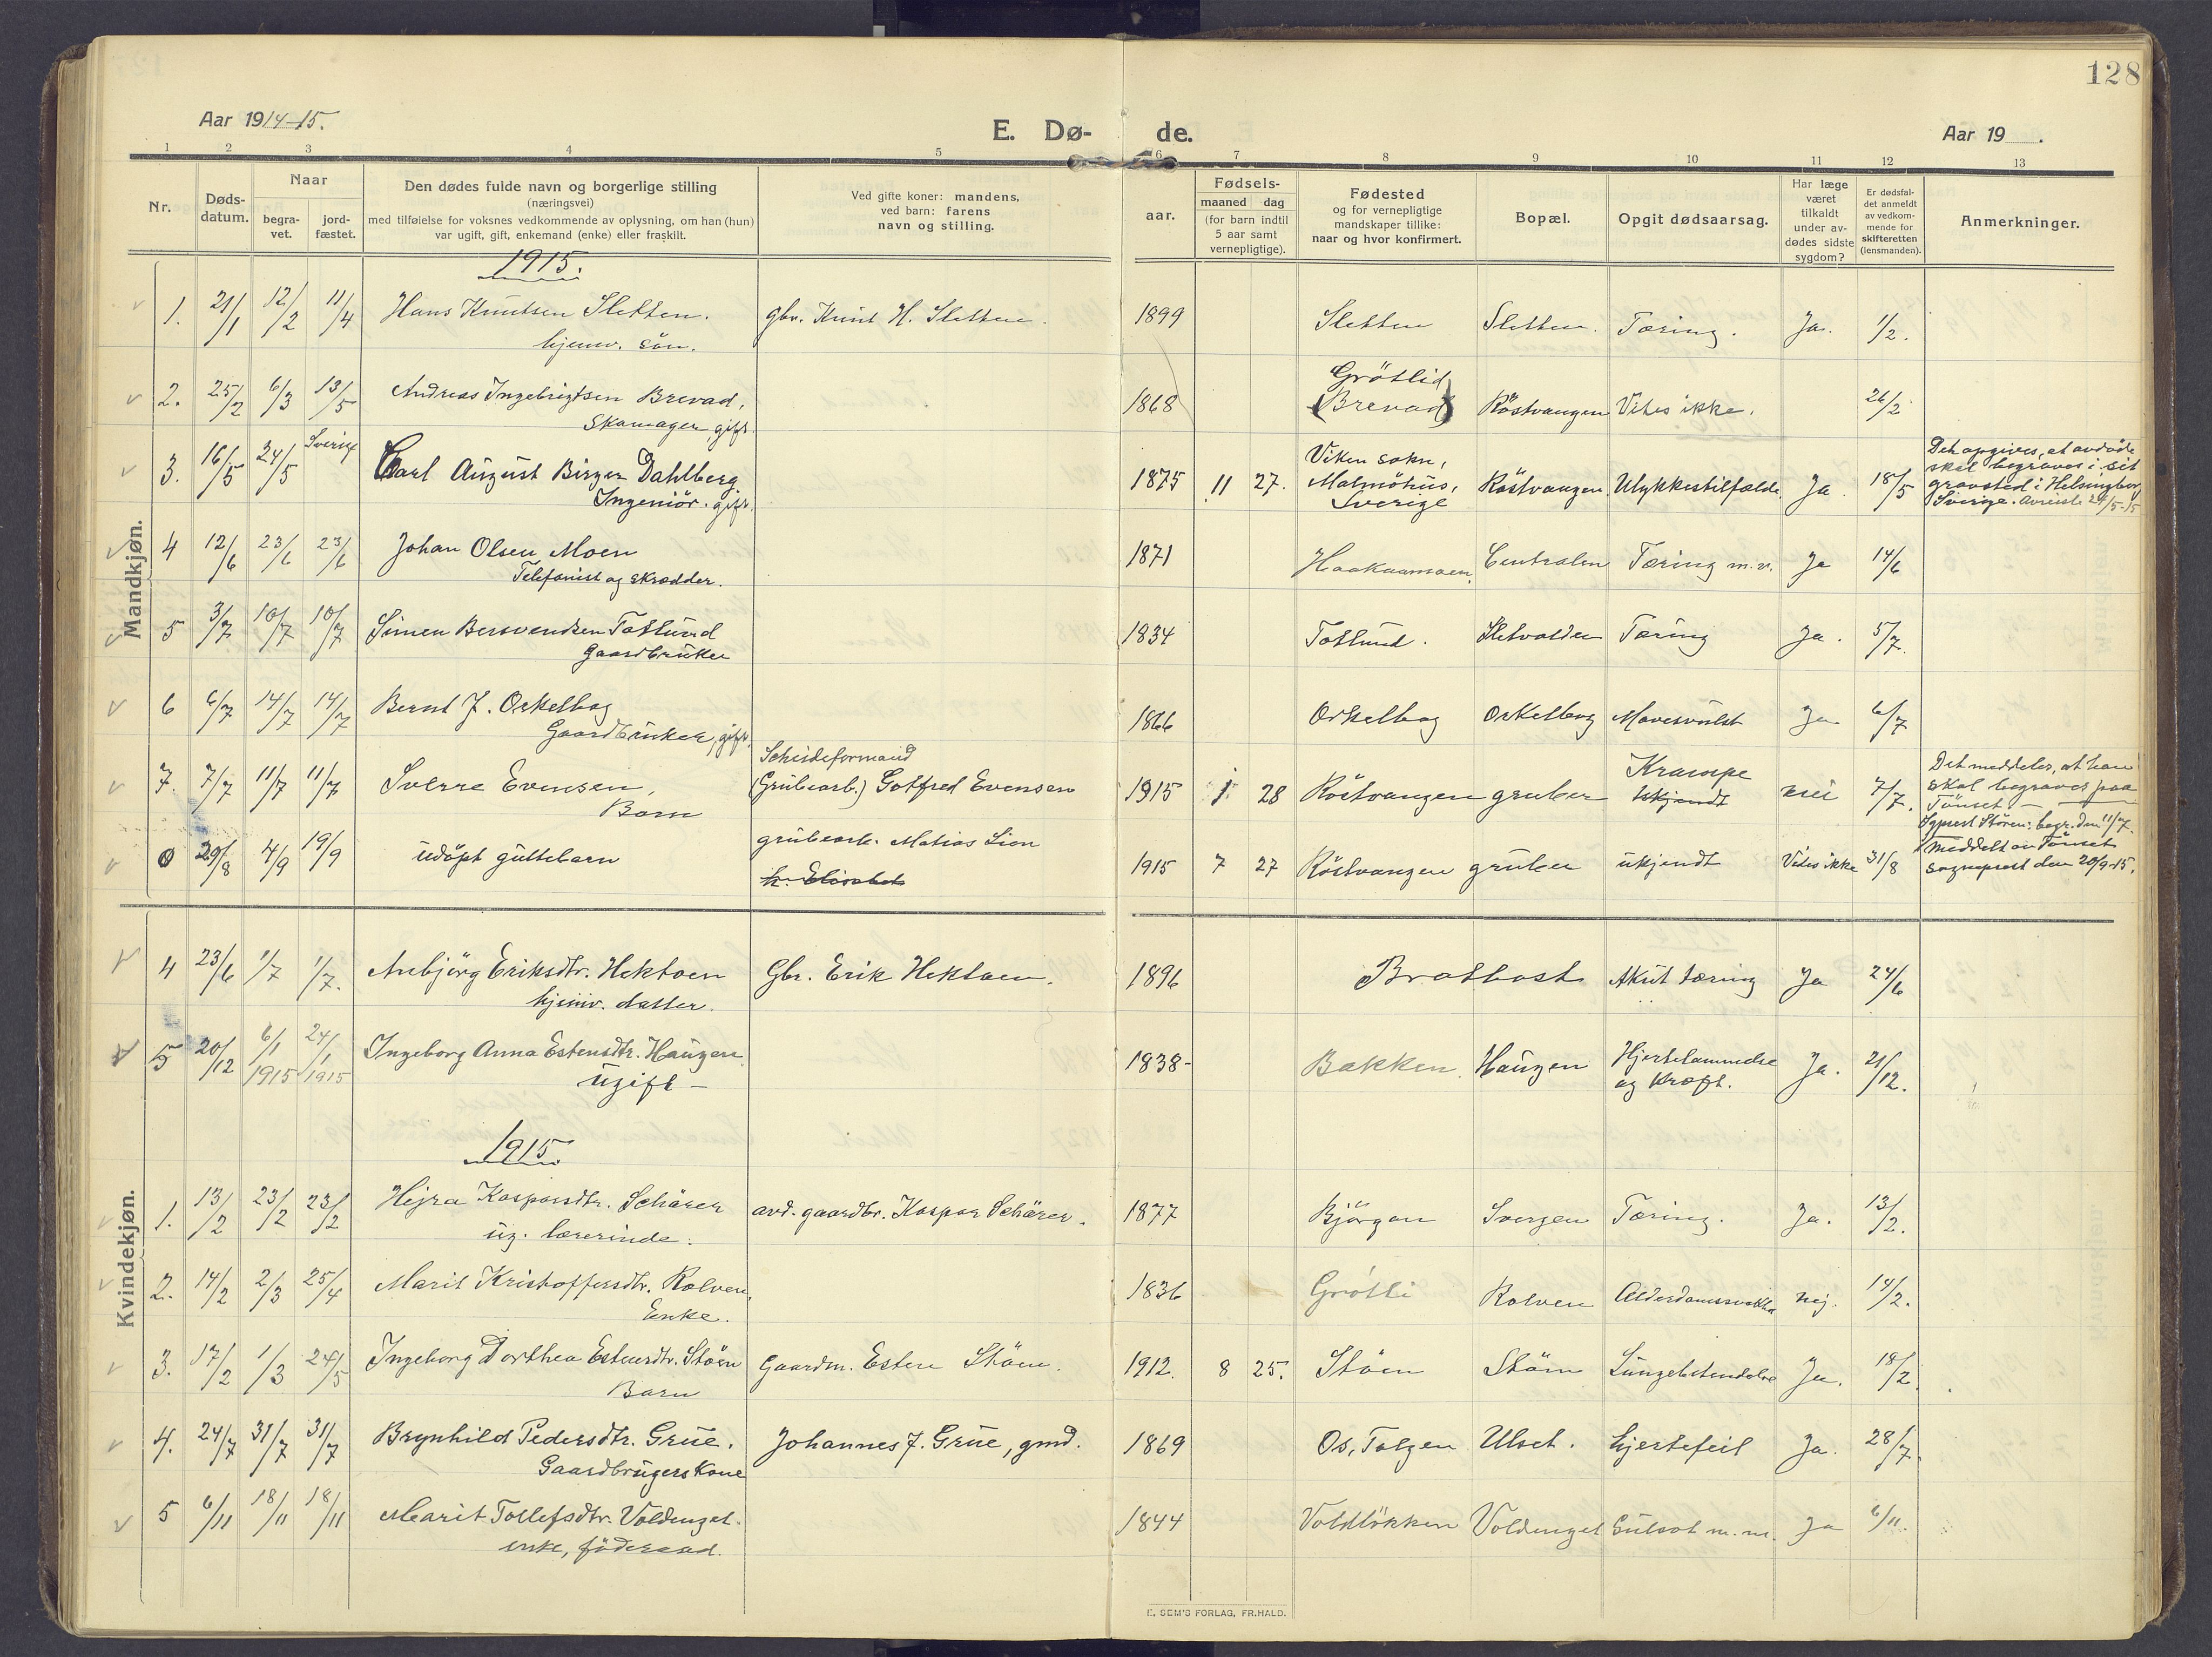 128
Aar 1914-15.
E. Dø-
de.
Aar 19 .
1 2 3 4 5 6 7 8 9 10 11 12 13
Nr.
Døds-
datum.
Naar
begra-
vet.
jord-
fæstet.
Den dødes fulde navn og borgerlige stilling
(næringsvei)
med tilføielse for voksnes vedkommende av oplysning, om han (hun)
var ugift, gift, enkemand (enke) eller fraskilt.
Ved gifte koner: mandens,
ved barn: farens
navn og stilling.
aar.
Fødsels-
maaned dag
(for barn indtil
5 aar samt
vernepligtige).
Fødested
og for vernepligtige
mandskaper tillike:
naar og hvor konfirmert.
Bopæl.
Opgit dødsaarsag.
Har læge
været
tilkaldt
under av-
dødes sidste
sygdom?
Er dødsfal-
det anmeldt
av vedkom-
mende for
skifteretten
(lensmanden).
Anmerkninger.
Mandkjøn.
1915.
1. 21/1 12/2 11/4 Hans Knutsen Sletten. gbr. Knut H. Sletten. 1899 Sletten Sletten. Tæring. Ja. 1/2.
hjemv. sön.
2. 25/2 6/3 13/5 Andreas Ingebrigtsen Brevad, 1868 Grötlid (Brevad) Röstvangen Vites ikke. 26/2
Skomager, gift.
3. 16/5 24/5 Sverige Carl August Birger Dahlberg 1875 11 27. Viken sokn, Röstvangen Ulykkestilfælde Ja. 18/5
Ingeniör. gift.
Malmöhus,
Sverige
Det opgives, at avdöde
skal begraves i sit
gravsted i Helsingborg
Sverige. Avreiste 24/5-15
4 12/6 23/6 23/6 Johan Olsen Moen 1871 Haakaamoen. Centralen Tæring m.v. Ja 14/6
Telefonist og skrædder.
5 3/7 10/7 10/7 Simen Bersvendsen Toslund 1834 Toslund. Tæring Ja. 5/7.
Gaardbruker
6 6/7 14/7 14/7 Bernt J. Orkelbog 1866 Orkelbog Orkelbog Mavesvulst Ja 6/7
Gaardbruker, gift.
7. 7/7 11/7 11/7 Sverre Evensen, Scheideformand 1915 1 28 Röstvangen gruber Krampe nei 7/7.
Barn (Grubearb.) Gotfred Evensen ukjendt
Det meddeles, at han
skal begraves paa
Tönset —
Sogneprest Stören: begr. den 11/7.
Meddelt av Tönset
sogneprest den 20/9-15.
0 29/8 4/9 19/9 udöpt guttebarn grubearb. Matias Lien 1915 7 27 Röstvangen gruber ukjendt Vites ikke 31/8
h. Elisabet
Kvindekjøn.
4 23/6 1/7 1/7. Anbjörg Eriksdtr. Hektoen Gbr. Erik Hektoen. 1896 Brattbost Akut tæring Ja 24/6
hjemv. datter.
5 20/12 6/1 1915 24/1 1915 Ingeborg Anna Estensdtr. Haugen 1838- Bakken. Haugen Hjertelammelse Ja. 21/12.
ugift — og kræft.
1915.
1. 13/2 23/2 23/2 Hejra Kasparsdtr. Schärer avd. gaardbr. Kaspar Schärer. 1877 Björgan Svergen Tæring. Ja. 13/2.
ug. lærerinde.
2. 14/2 2/3 25/4 Marit Kristoffersdtr. Kolven, 1836 Grötli Kolven Alderdomssvækkelse nej. 14/2.
Enke.
3. 17/2 1/3 24/5 Ingeborg Dorthea Estensdtr. Stöen Gaardm. Esten Stöen. 1912. 8 25. Stöen Stöen Lungebetendelse Ja. 18/2.
Barn
4. 24/7 31/7 31/7 Brynhild Pedersdtr. Grue. Johannes J. Grue, gmd. 1869 Os, Tolgen Ulset. hjertefeil Ja. 28/7.
Gaardbrugers Kone
5 6/11 18/11 18/11 Marit Tollefsdtr. Voldenget. 1844 Voldlökken Voldenget Gulsot m.m. Ja 6/11.
enke, föderaad.
E. SEM'S FORLAG, FR.HALD.